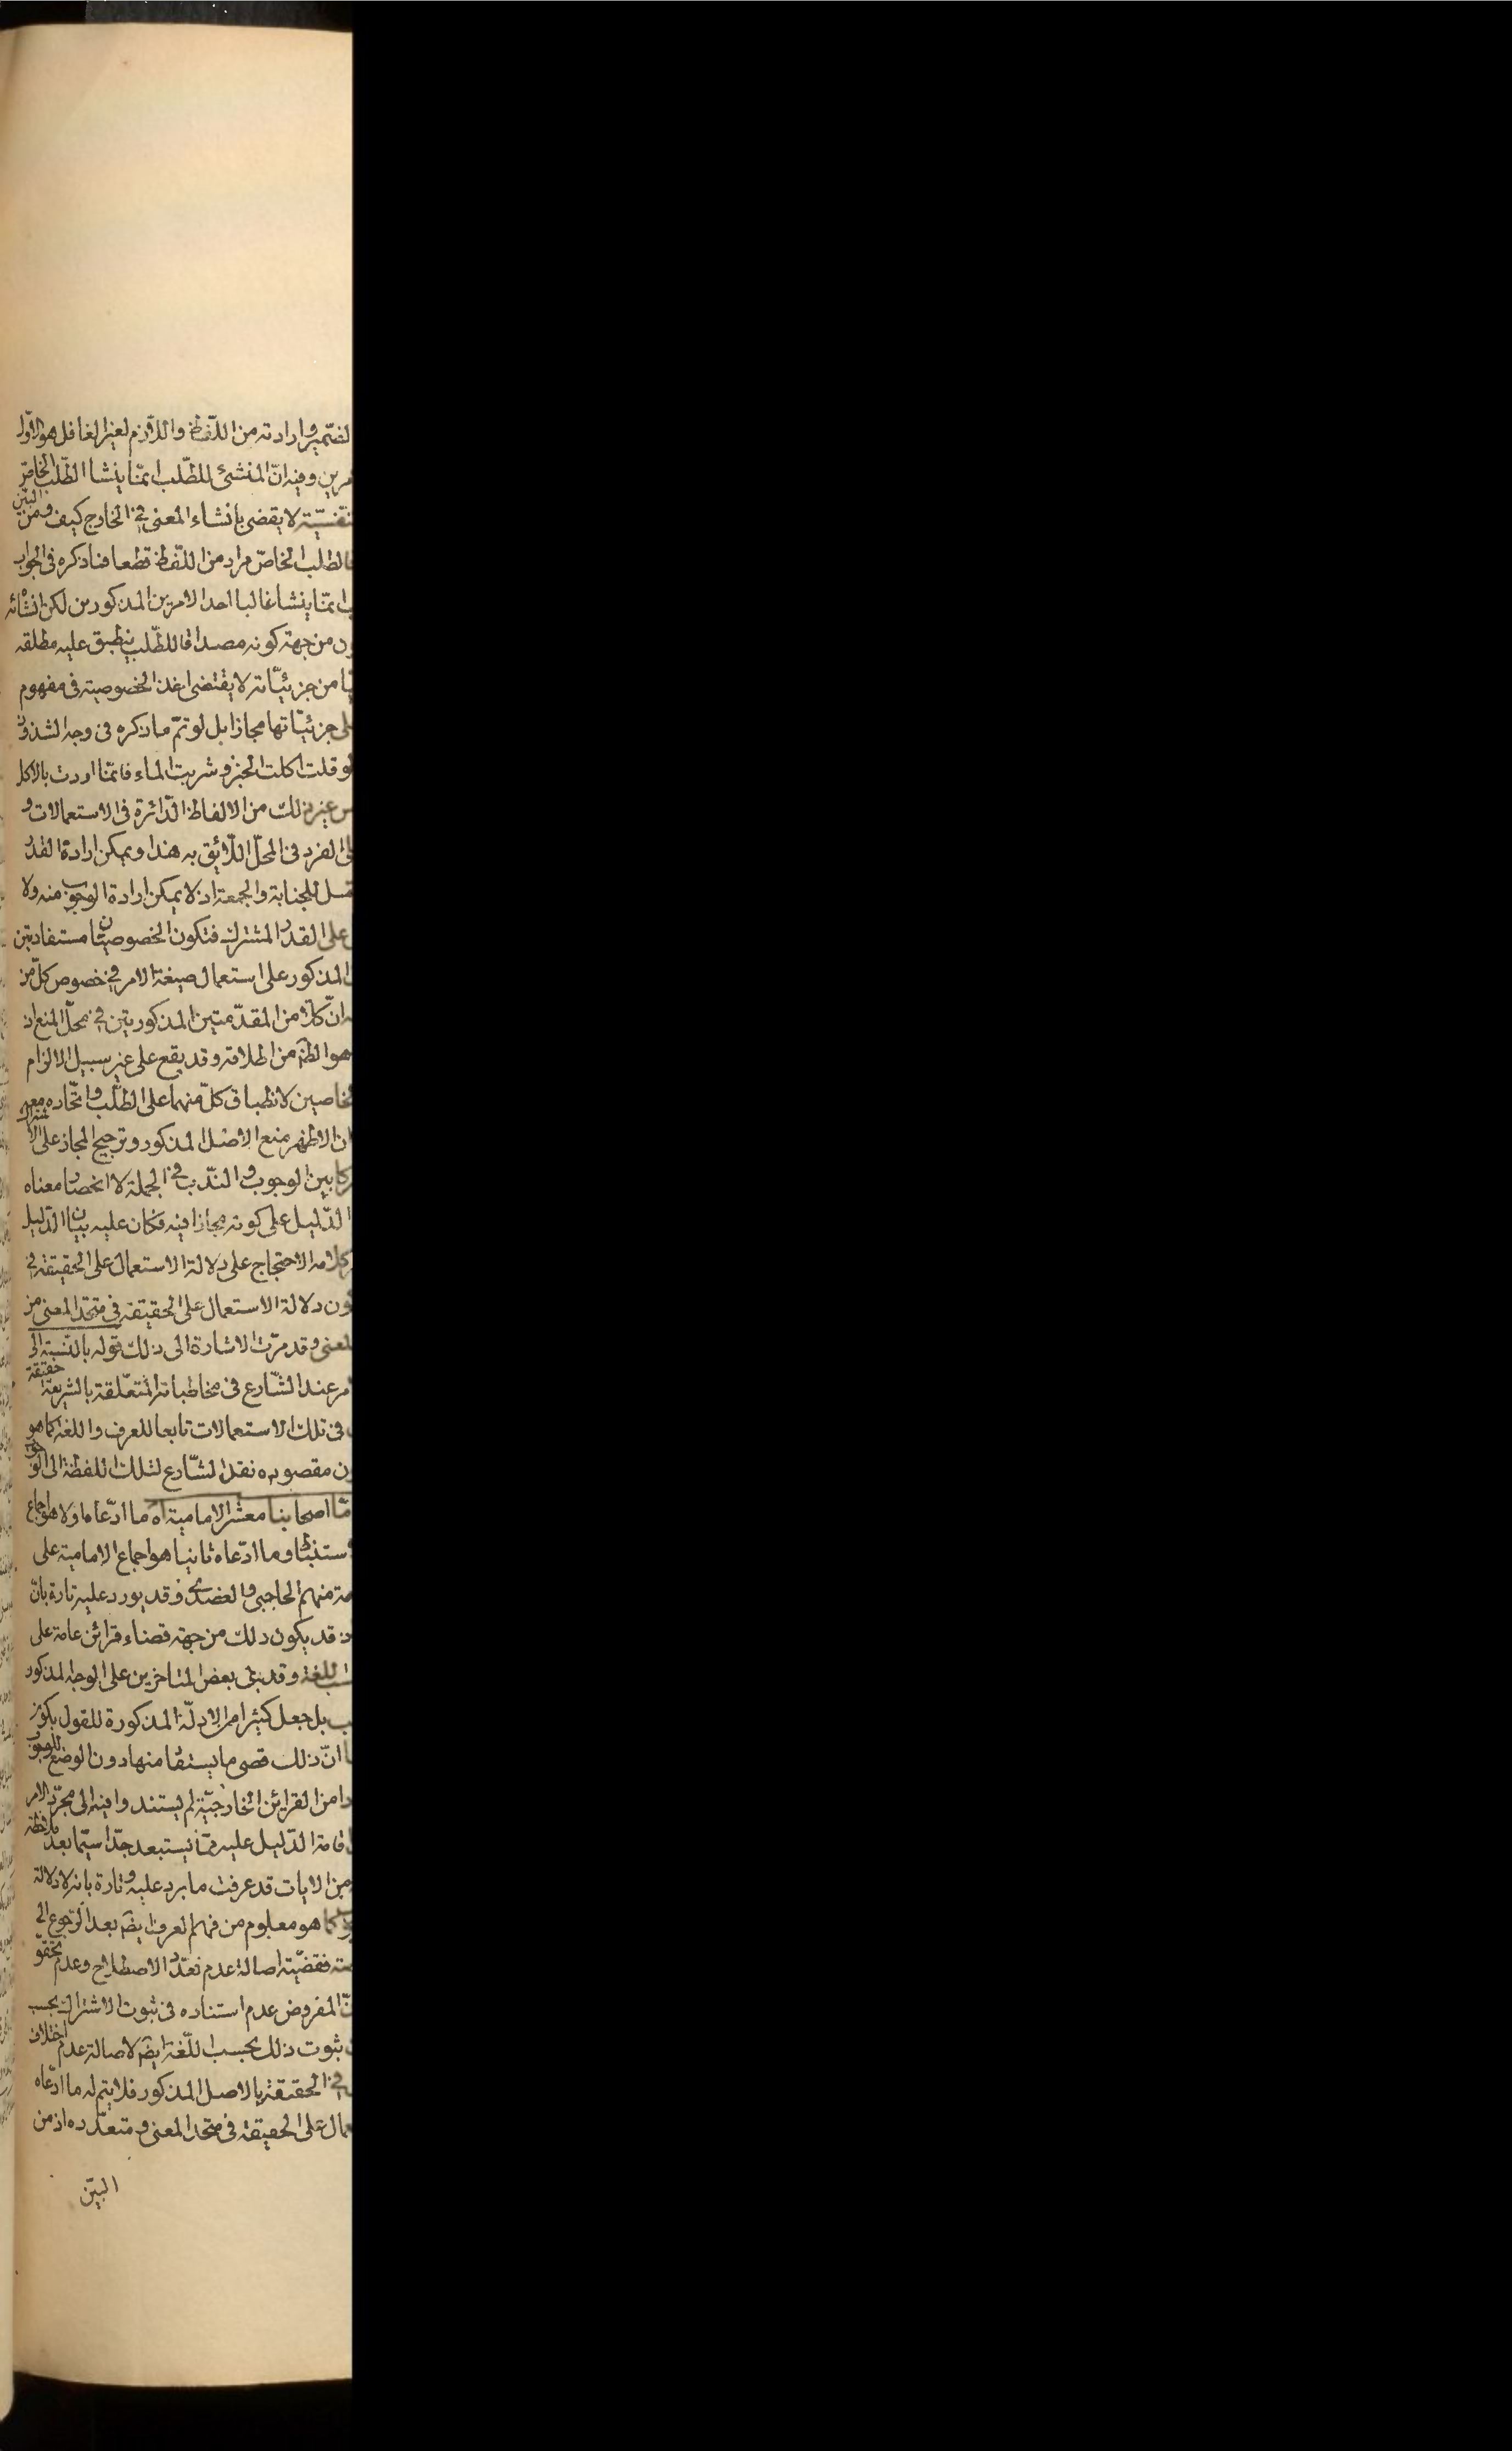 الضمير وارادته من اللفظ واللازم لغير الغافل هو الاول
مرين وفيه ان المنشئ للطلب انما ينشأ الطلب الخاص
نفسية لا يقضى بانشاء المعنى في الخارج كيف ومن البين
فالطلب الخاص مراد من اللفظ قطعا فما ذكره في الجواب
انما ينشأ غالبا احد الامرين المذكورين لكن انشائه
ون من جهة كونه مصداقا للطلب ينطبق عليه مطلقه
من جزئياته لا يقتضى اخذ الخصوصية في مفهوم
على جزئياتها مجازا بل لو تم ما ذكره في وجه الشذوذ
لو قلت اكلت الخبز وشربت الماء فانما اردت بالاكل
غير ذلك من الالفاظ الدائرة في الاستعمالات و
الفرد في المحل اللائق به هذا ويمكن ارادة القدر
غسل للجنابة والجمعة اذ لا يمكن ارادة الوجوب منه ولا
على القدر المشترك فتكون الخصوصيتان مستفادتين
المذكور على استعمال صيغة الامر في خصوص كل من
ان كلا من المقدمتين المذكورتين في محل المنع اذ
هو الظ من اطلاقه وقد يقع على غير سبيل الالزام
الخاصين لانطباق كل منهما على الطلب واتحاده معه
ان الاظهر منع الاصل المذكور وترجيح المجاز على الاشتراك
كا بين الوجوب والندب في الجملة لا انحصار معناه
الدليل على كونه مجازا فيه فكان عليه بيان الدليل
كلامه الاحتجاج على دلالة الاستعمال على الحقيقة في
ون دلالة الاستعمال على الحقيقة في متحد المعنى من
المعنى وقد مرت الاشارة الى ذلك قوله بالنسبة الى
مر عند الشارع في مخاطباته المتعلقة بالشريعة حقيقة
في تلك الاستعمالات تابعا للعرف واللغة كما هو
ون مقصوده نقل الشارع لتلك اللفظة الى الوجوب
ما اصحابنا معشر الامامية اه ما ادعاه اولا هو اجماع
وما ادعاه ثانيا هو اجماع الامامية على
مة منهم الحاجبى والعضدى وقد يورد عليه تارة بان
قد يكون ذلك من جهة قضاء قرائن عامة على
اللغة وقد بنى بعض المتاخرين على الوجه المذكور
ب بل جعل كثيرا من الادلة المذكورة للقول بكونه
ان ذلك قصى ما يستفاد منها دون الوضع للوجوب
من القرائن الخارجية لم يستندوا فيه الى مجرد الامر
اقامة الدليل عليه مما يستبعد جدا سيما بعد ملاحظة
من الايات قد عرفت ما يرد عليه وتارة بانه لا دلالة
كما هو معلوم من فهم العرف ايضا بعد الرجوع الى
فقضية اصالة عدم تعدد الاصطلاح وعدم تحقق
المفروض عدم استناده في ثبوت الاشتراك بحسب
ثبوت ذلك بحسب اللغة ايضا لاصالة عدم اختلاف
في الحقيقة بالاصل المذكور فلا يتم له ما ادعاه
مال على الحقيقة في متحد المعنى ومتعدده اذ من
البين